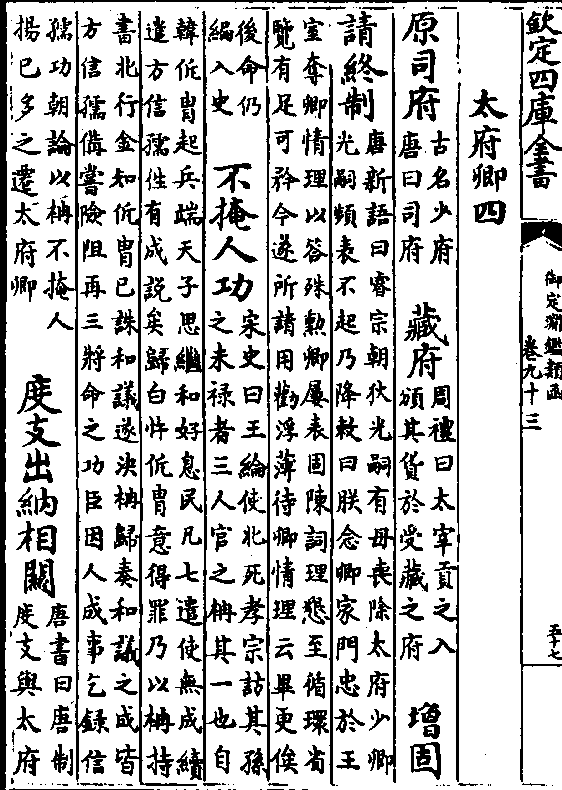 欽定四庫全書
御定淵鑑類函
卷九十三
五十七
太府卿四
原司府
古名少府
唐曰司府
藏府
周禮曰太宰貢之入
頒其貨於受藏之府
增固
請終制
唐新語曰睿宗朝狄光嗣有母喪除太府少卿
光嗣頻表不起乃降敕曰朕念卿家門忠於王
室奪卿情理以答殊勲卿屢表固陳詞理懇至循環省
覽有足可矜今遂所請用勸浮薄待卿情理云畢更俟
後命仍
編入史
不掩人功
宋史曰王綸使北死孝宗訪其孫
之未禄者三人官之柟其一也自
韓侂胄起兵端天子思繼和好息民凡七遣使無成續
遣方信孺往有成説矣歸白忤侂胄意得罪乃以柟持
書北行金知侂胄已誅和議遂決柟歸奏和議之成皆
方信孺備嘗險阻再三將命之功臣因人成事乞録信
孺功朝論以柟不掩人
揚已多之遷太府卿
度支出納相關
唐書曰唐制
度支與太府